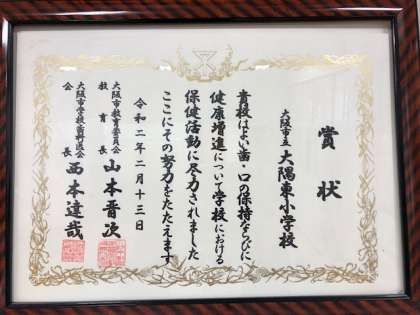 賞状
大阪市立大隅東小学校
貴校はよい歯・口の保持ならびに
健康増進について学校における
保健活動に尽力されました
ここにその努力をたたえます
令和二年二月十三日
大阪市教育委員会
教育長 山本晋次
大阪市学校歯科医会
会長 西本達哉